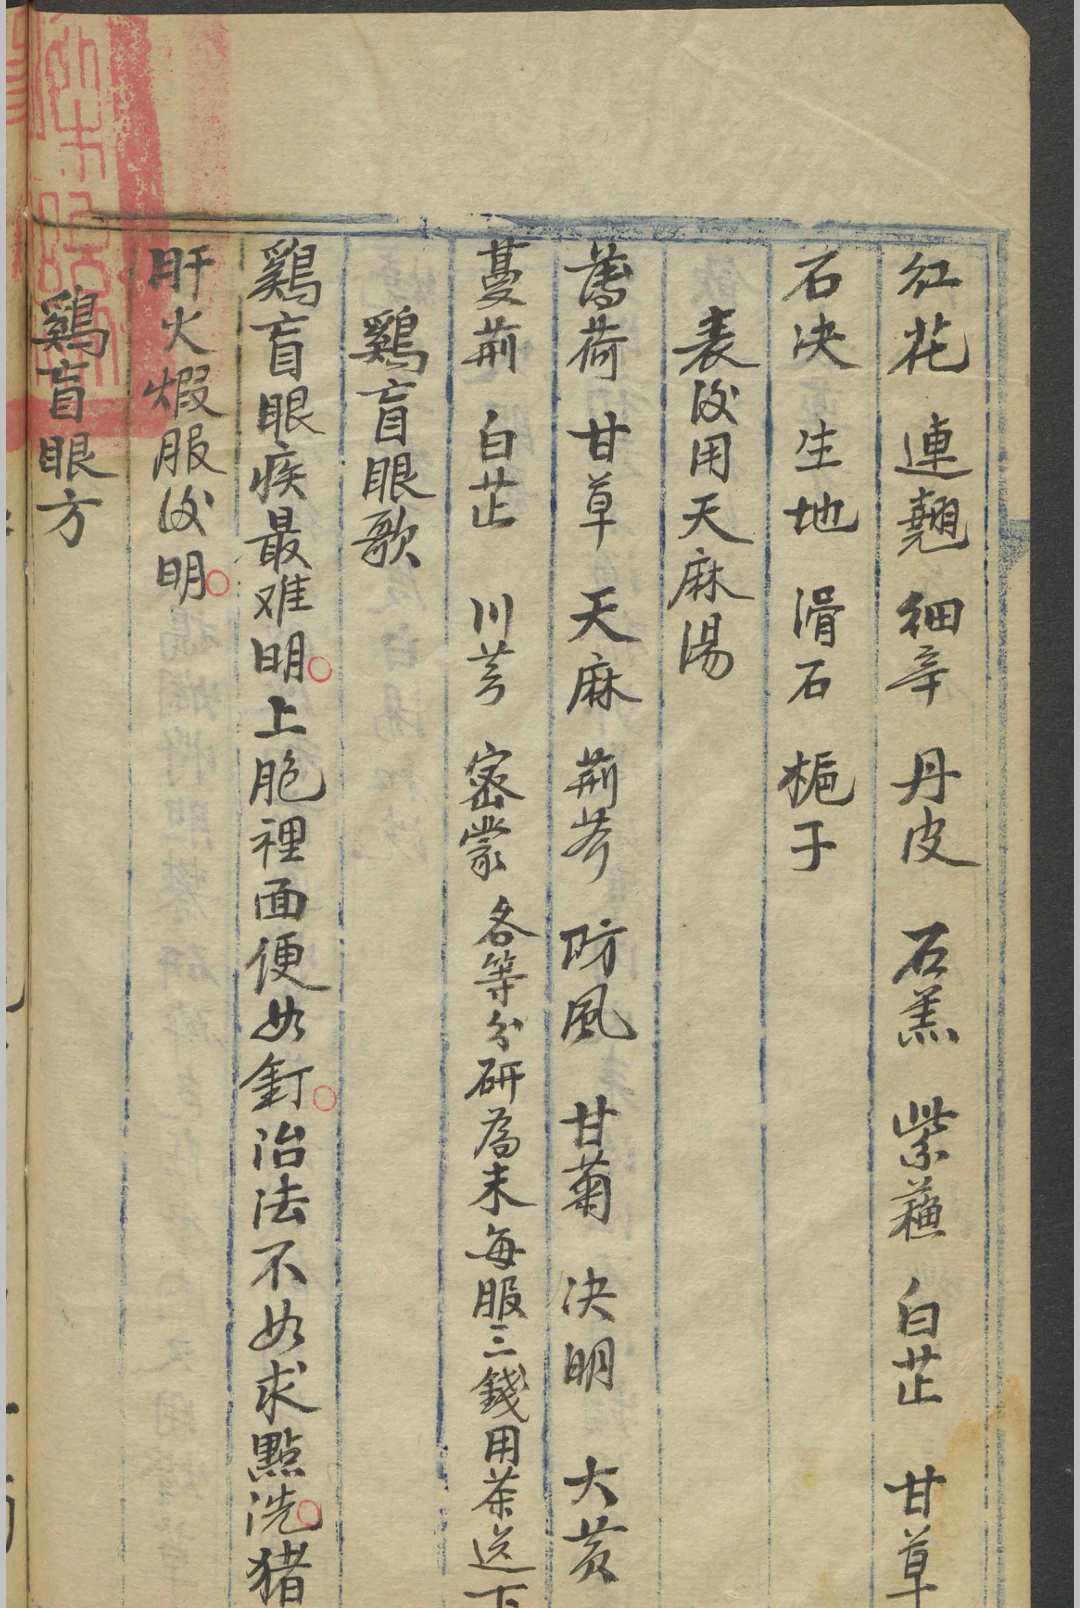 紅花 連翹 細辛 丹皮 石羔 紫蘓 白芷 甘草
石决 生地 滑石 梔子
表后用天麻湯
薄荷 甘草 天麻 荊芥 防風 甘菊 决明 大黃
蔓荊 白芷 川芎 密蒙 各等分研為末每服三錢用茶送下
鷄盲眼歌
鷄盲眼疾最难明。上胞裡面便如釘。治法不如求點洗。猪
肝火煆服后明。
鷄盲眼方